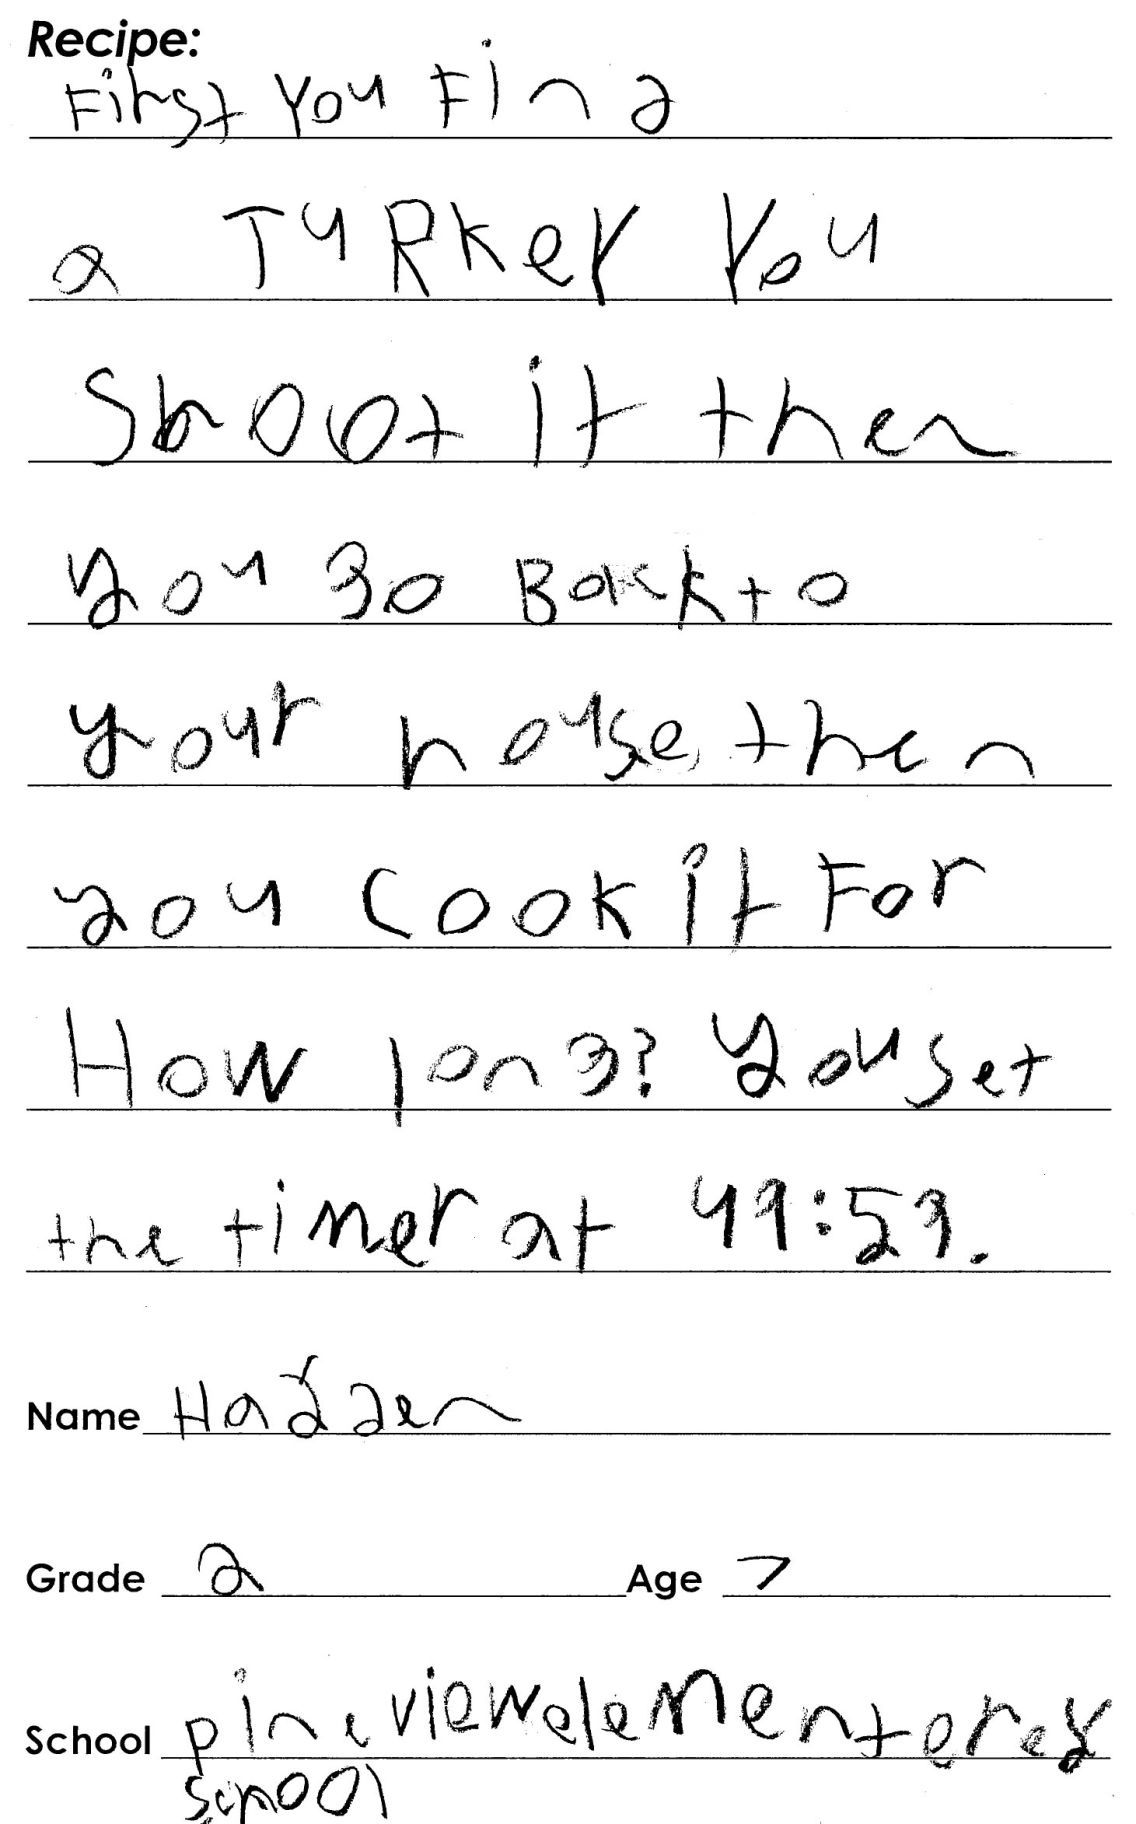 Recipe:
First you Find
a TuRkey you
Shoot it then
you go Back to
your house then
you Cook it For
How long? you set
the timer at 49:59.
Name Hadden
Grade 2 Age 7
School pine view elementerey
school